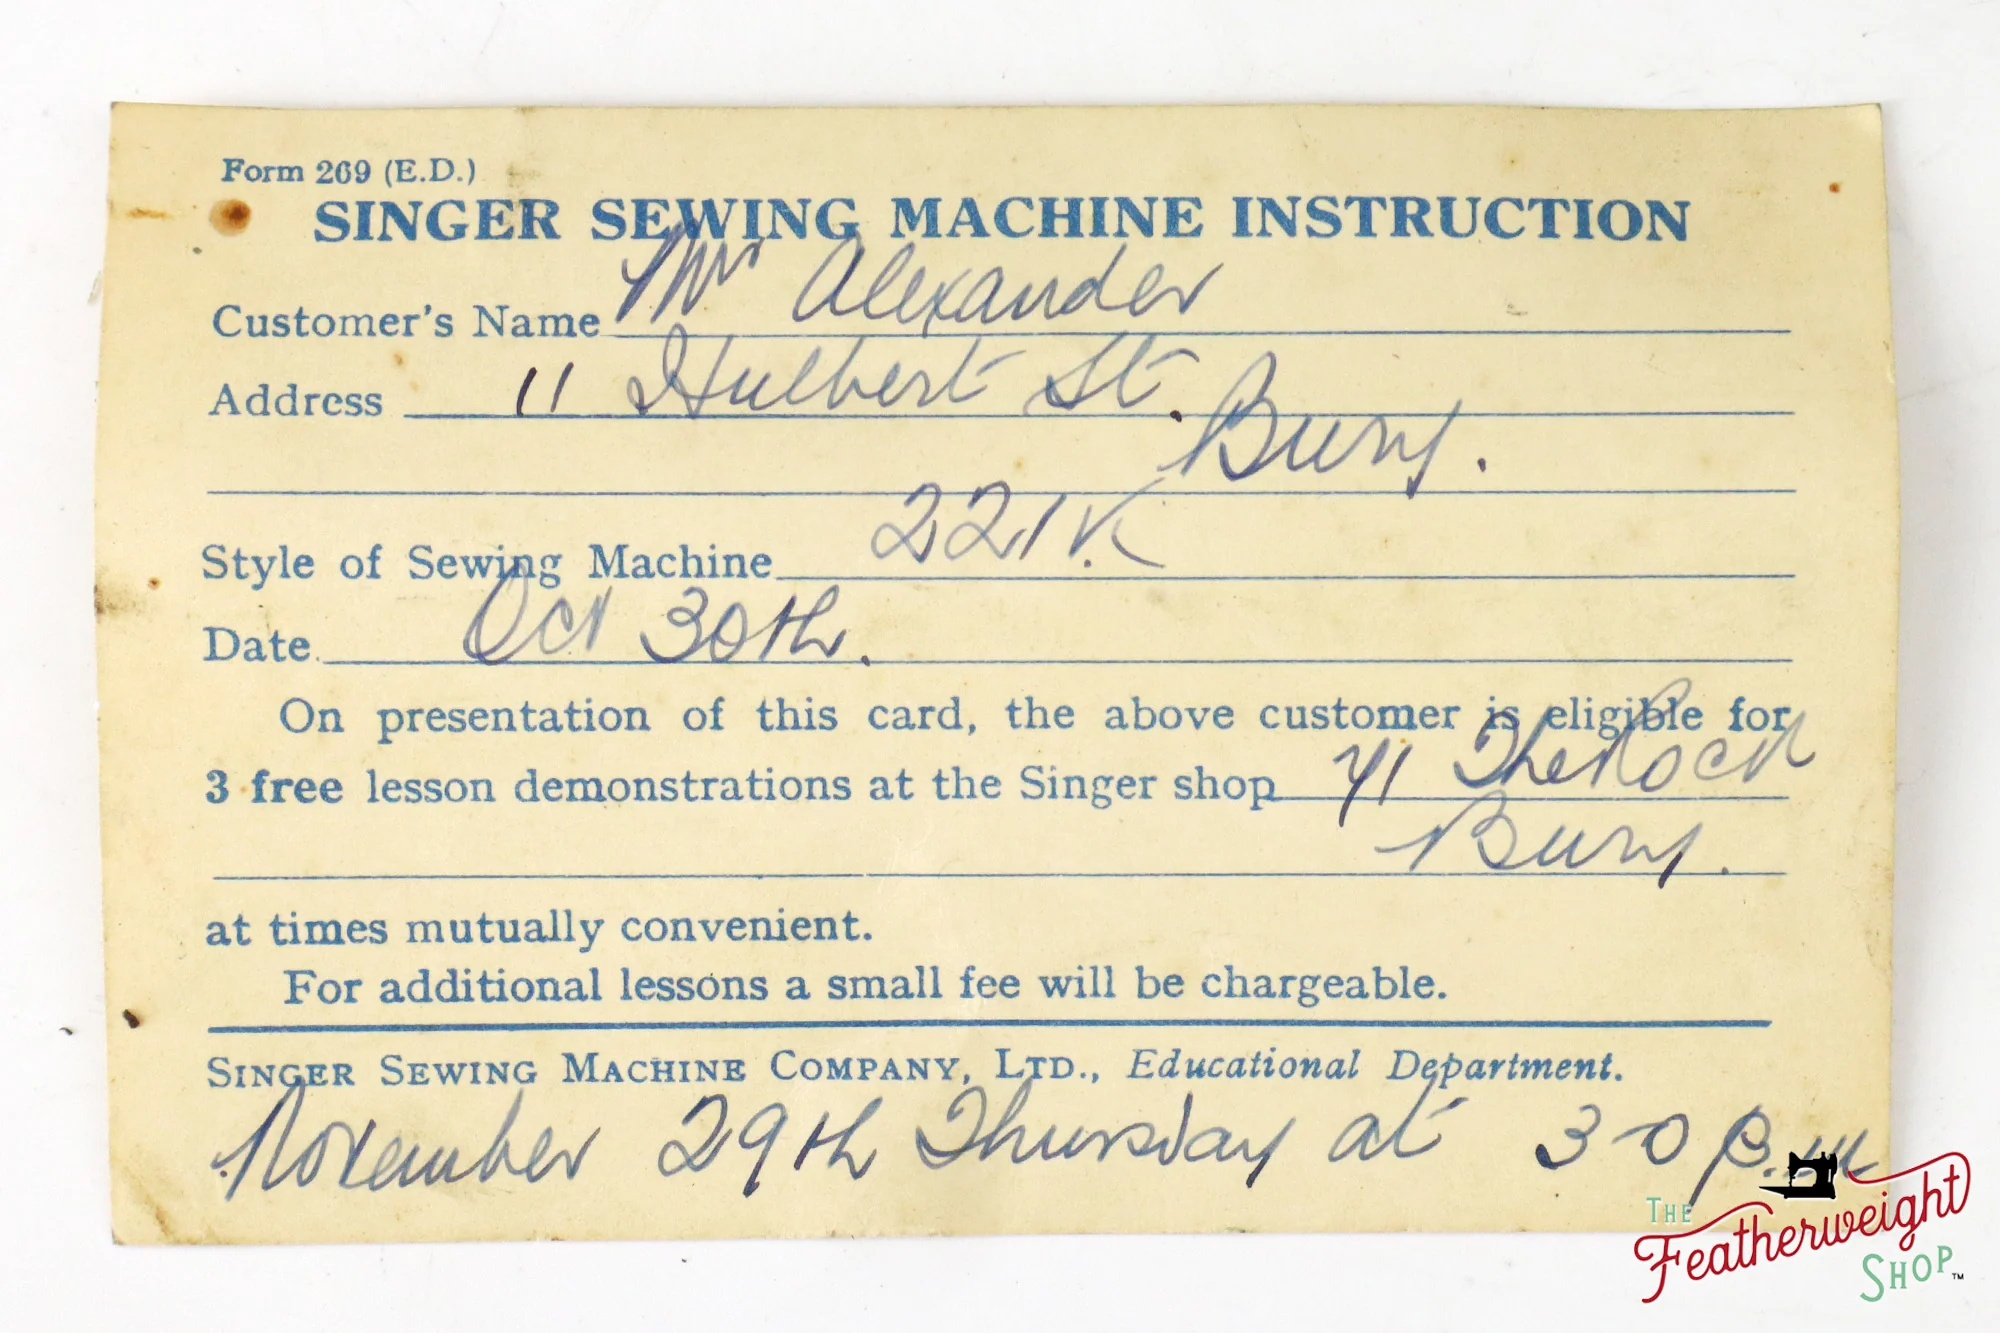 Form 269 (E.D.)
SINGER SEWING MACHINE INSTRUCTION
Customer's Name Mr Alexander
Address 11 Hulbert St.
Bury.
Style of Sewing Machine 221K
Date Oct 30th.
On presentation of this card, the above customer is eligible for
3 free lesson demonstrations at the Singer shop 41 The Rock
Bury.
at times mutually convenient.
For additional lessons a small fee will be chargeable.
SINGER SEWING MACHINE COMPANY, LTD., Educational Department.
November 29th Thursday at 3-0 p.m
THE
Featherweight
SHOP™